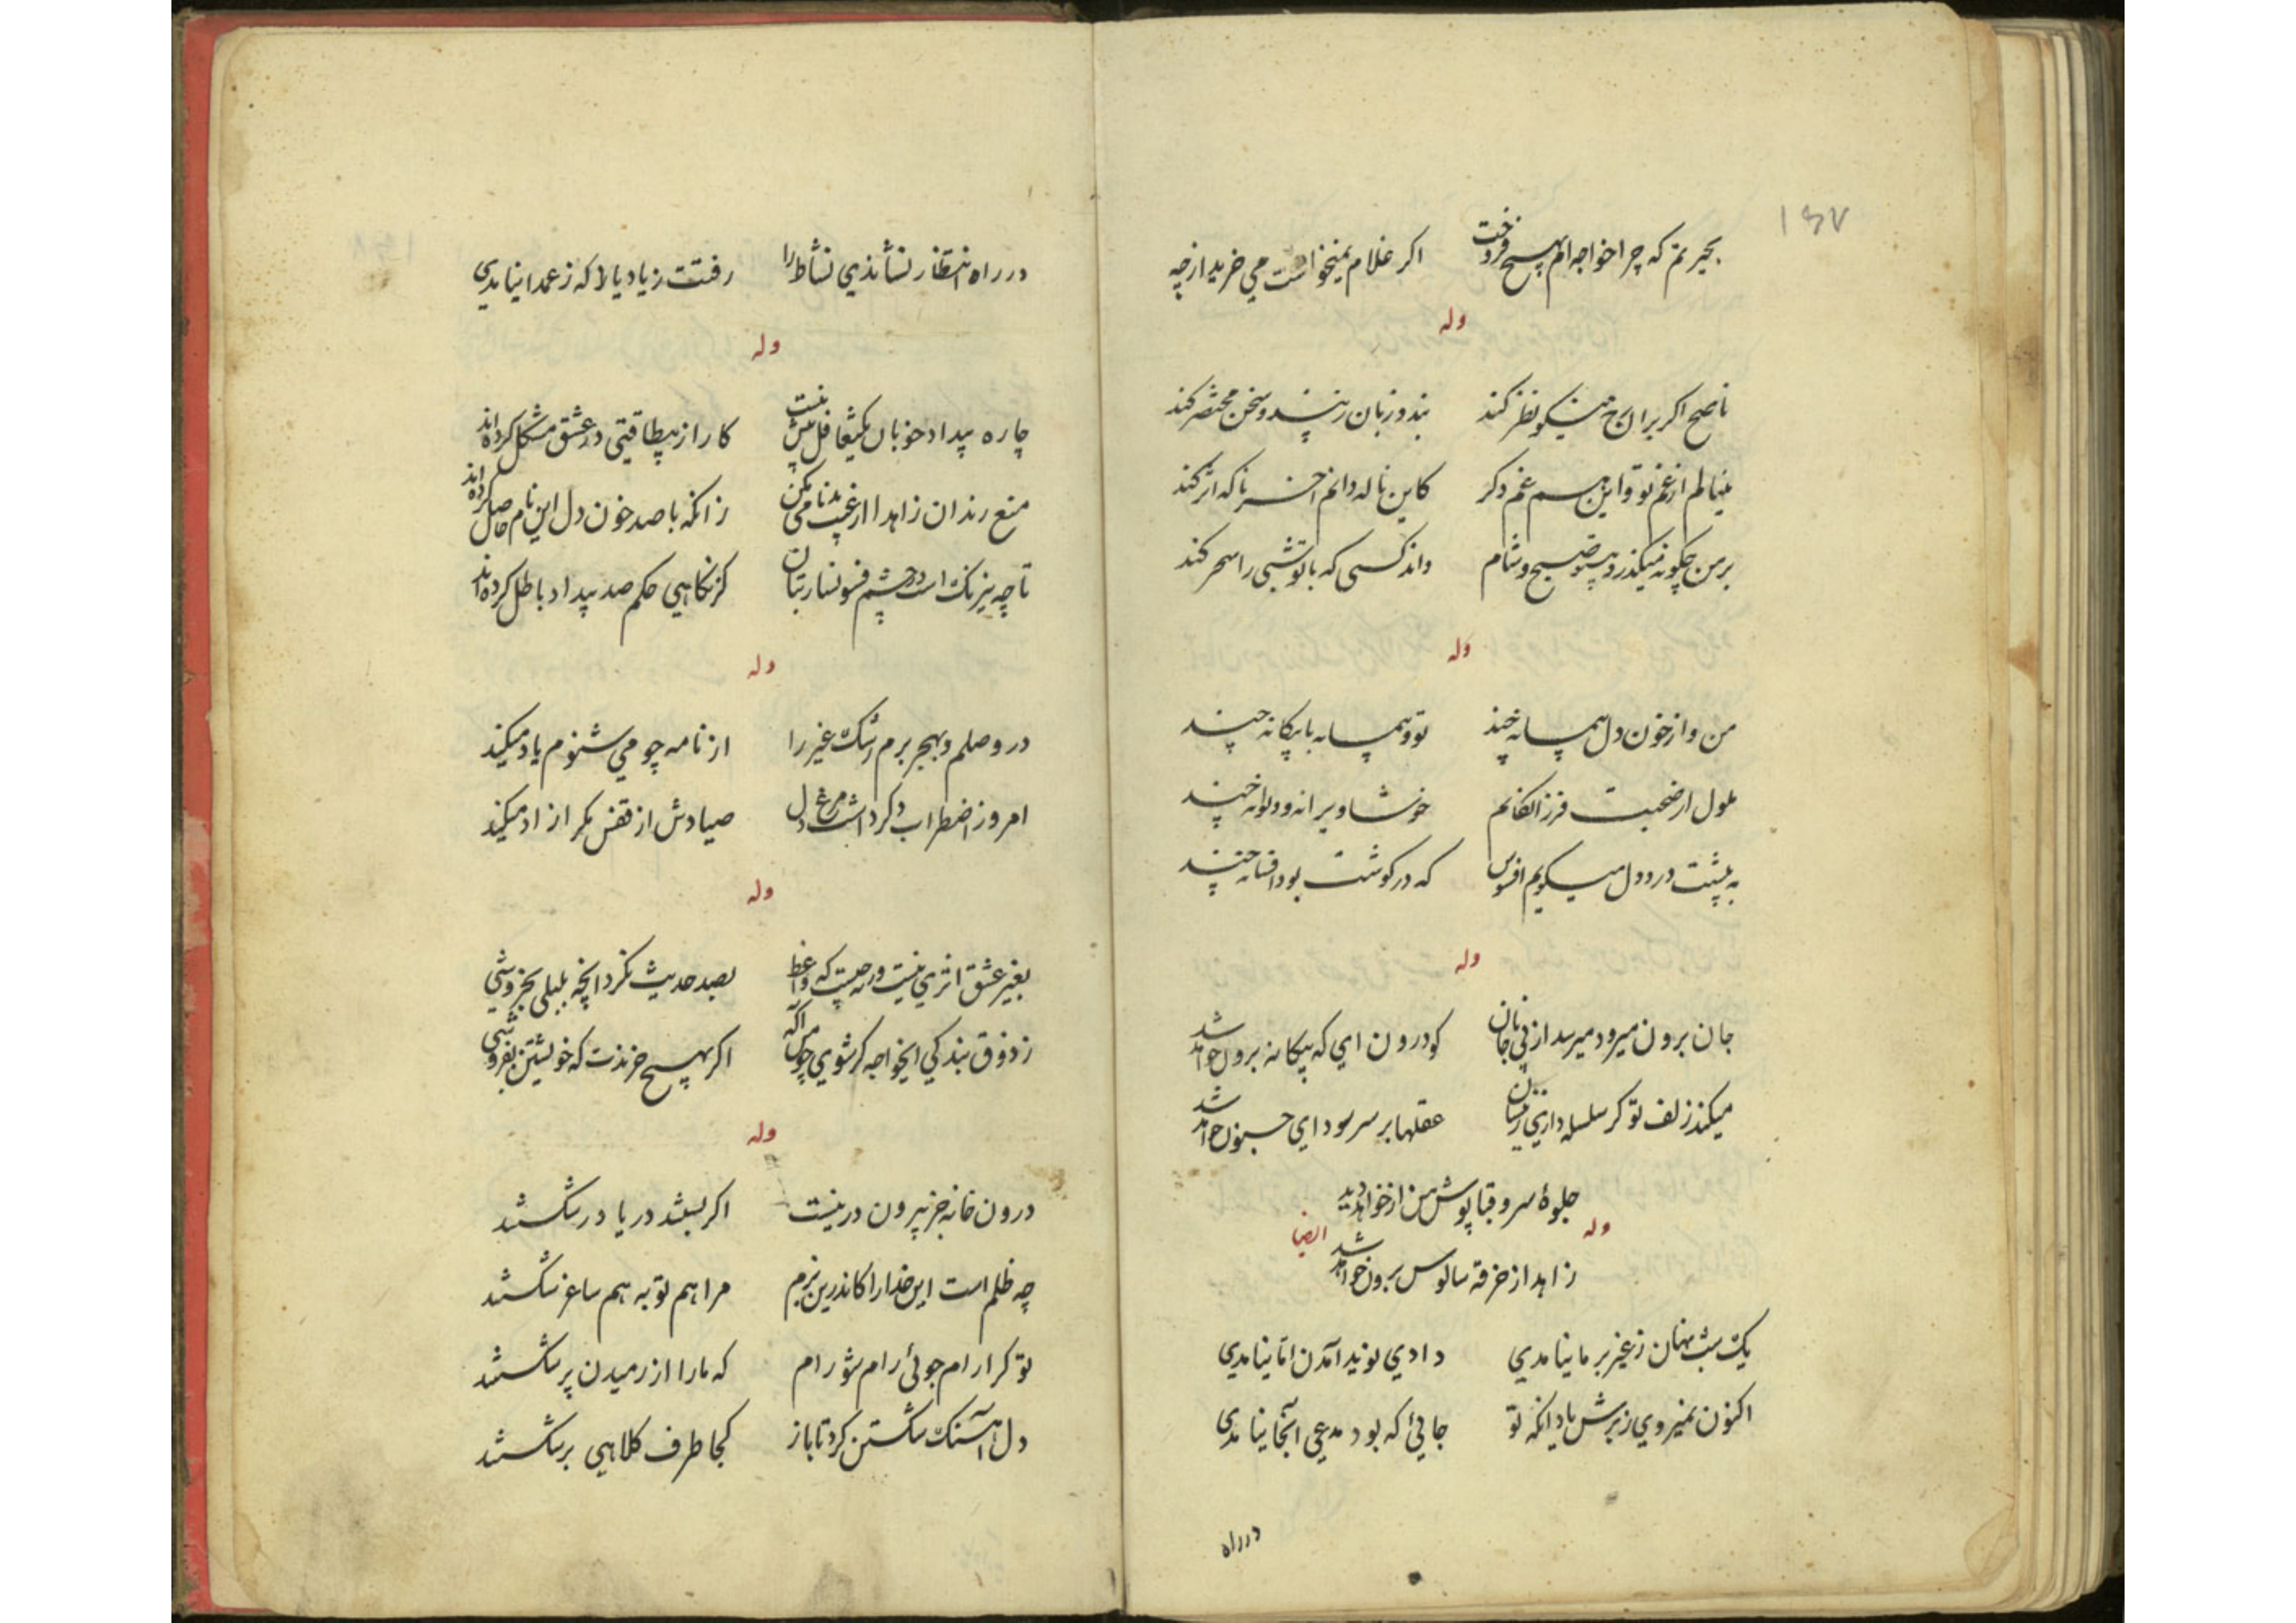 ۱۶۷
بحیرتم که چرا خواجه ام بهیچ فروخت اکر غلام نمیخواست می خرید از چه
وله
ناصح اکر بران رخ نیکو نظر کند بندد زبان ز پند و سخن مختصر کند
مینالم از غم تو و این هم غم دکر کاین ناله دانم اخر ناکه اثر کند
بر من چکونه میکذرد بیتو صبح و شام داند کسی که با تو شبی را سحر کند
وله
من و از خون دل پیمانه چند تو و پیمانه با بیکانه چند
ملول از صحبت فرزانکانم خوشا ویرانه و دیوانه چند
به پیشت درد دل میکویم افسوس که در کوشت بود افسانه چند
وله
جان برون میرود میرسد از پی جانان کو درون ای که بیکانه برون خواهد شد
میکند زلف تو کر سلسله داری زینسان عقلها بر سر سودای جنون خواهد شد
جلوهٔ سرو قباپوش من ار خواهد دید
وله ایضا
زاهد از خرقه سالوس برون خواهد شد
یک شب نهان ز غیر بر ما نیامدی دادی نوید امدن اما نیامدی
اکنون نمیروی ز برش یاد انکه تو جائی که بود مدعی انجا نیامدی
در راه
در راه انتظار نشاندی نشاط را رفتت ز یاد یا که ز عمدا نیامدی
وله
چاره بیداد خوبان یکتغافل بیش نیست کار را از بیطاقتی در عشق مشکل کرده اند
منع رندان زاهدا از عیب بدنامی مکن زانکه با صد خون دل این نام حاصل کرده اند
تا چه نیرنک است در چشم فسونساز بتان کز نکاهی حکم صد بیداد باطل کرده اند
وله
در وصلم و بهجر برم رشک غیر را از نامه چو می شنوم یاد میکند
امروز اضطراب دکر داشت مرغ دل صیادش از قفس مکر ازاد میکند
وله
بغیر عشق اثری نیست ورنه چیست که واعظ بصد حدیث نکرد انچه بلبلی بخروشی
ز ذوق بندکی ایخواجه کر شوی چو من اکه اکر بهیچ خرندت که خویشتن بفروشی
وله
درون خانه جز بیرون در نیست اکر بستند در یا در شکستند
چه ظلم است این خدا را کاندرین بزم مرا هم توبه هم ساغر شکستند
تو کر ارام جوئی رام شو رام که ما را از رمیدن پر شکستند
دل اهنک شکستن کرد تا باز کجا طرف کلاهی بر شکستند